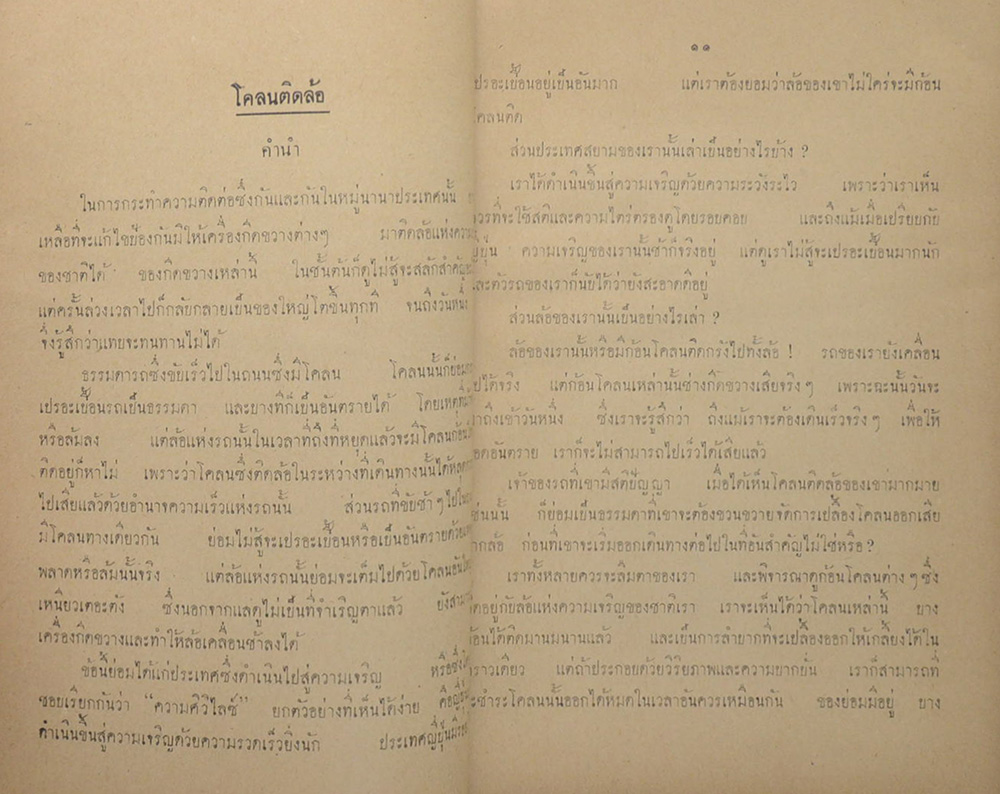 โคลนติดล้อ
คำนำ
ในการกระทำความติดต่อซึ่งกันและกันในหมู่นานาประเทศนั้น
เหลือที่จะแก้ไขป้องกันมิให้เครื่องกีดขวางต่างๆ มาติดล้อแห่งความ
ของชาติได้ ของกีดขวางเหล่านี้ ในชั้นต้นก็ดูไม่สู้จะสลักสำคัญ
แต่ครั้นล่วงเวลาไปก็กลับกลายเป็นของใหญ่โตขึ้นทุกที จนถึงวันหนึ่ง
จึ่งรู้สึกว่าแทบจะทนทานไม่ได้
ธรรมดารถซึ่งขับเร็วไปในถนนซึ่งมีโคลน โคลนนั้นก็ย่อม
เปรอะเปื้อนรถเป็นธรรมดา และบางทีก็เป็นอันตรายได้ โดยเหตุ
หรือล้มลง แต่ล้อแห่งรถนั้นในเวลาที่ถึงที่หยุดแล้วจะมีโคลนก้อน
ติดอยู่ก็หาไม่ เพราะว่าโคลนซึ่งติดล้อในระหว่างที่เดินทางนั้นได้หลุด
ไปเสียแล้วด้วยอำนาจความเร็วแห่งรถนั้น ส่วนรถที่ขับช้าๆ ไป
มีโคลนทางเดียวกัน ย่อมไม่สู้จะเปรอะเปื้อนหรือเป็นอันตรายด้วย
พลาดหรือล้มนั้นจริง แต่ล้อแห่งรถนั้นย่อมจะเต็มไปด้วยโคลนอัน
เหนียวเตอะตัง ซึ่งนอกจากแลดูไม่เป็นที่จำเริญตาแล้ว ยัง
เครื่องกีดขวางและทำให้ล้อเคลื่อนช้าลงได้
ข้อนี้ย่อมได้แก่ประเทศซึ่งดำเนินไปสู่ความเจริญ หรือซึ่ง
ชอบเรียกกันว่า “ความศิวิไลซ์” ยกตัวอย่างที่เห็นได้ง่าย คือ
ดำเนินขึ้นสู่ความเจริญด้วยความรวดเร็วยิ่งนัก ประเทศญี่ปุ่น
๑๑
เปรอะเปื้อนอยู่เป็นอันมาก แต่เราต้องยอมว่าล้อของเขาไม่ใคร่จะมีก้อน
โคลนติด
ส่วนประเทศสยามของเรานั้นเล่าเป็นอย่างไรบ้าง ?
เราได้ดำเนินขึ้นสู่ความเจริญด้วยความระวังระไว เพราะว่าเราเห็น
ควรที่จะใช้สติและความไตร่ตรองดูโดยรอบคอบ และถึงแม้เมื่อเปรียบกับ
ญี่ปุ่น ความเจริญของเรานั้นช้าก็จริงอยู่ แต่ดูเราไม่สู้จะเปรอะเปื้อนมากนัก
และตัวรถของเราก็นับได้ว่ายังสะอาดดีอยู่
ส่วนล้อของเรานั้นเป็นอย่างไรเล่า ?
ล้อของเรานั้นหรือมีก้อนโคลนติดกรังไปทั้งล้อ ! รถของเรายังเคลื่อน
ไปได้จริง แต่ก้อนโคลนเหล่านั้นช่างกีดขวางเสียจริงๆ เพราะฉะนั้นวันจะ
มาถึงเข้าวันหนึ่ง ซึ่งเราจะรู้สึกว่า ถึงแม้เราจะต้องเดินเร็วจริงๆ เพื่อให้
รอดอันตราย เราก็จะไม่สามารถไปเร็วได้เสียแล้ว
เจ้าของรถที่เขามีสติปัญญา เมื่อได้เห็นโคลนติดล้อของเขามากมาย
เช่นนั้น ก็ย่อมเป็นธรรมดาที่เขาจะต้องขวนขวายจัดการเปลื้องโคลนออกเสีย
จากล้อ ก่อนที่เขาจะเริ่มออกเดินทางต่อไปในที่อันสำคัญไม่ใช่หรือ ?
เราทั้งหลายควรจะลืมตาของเรา และพิจารณาดูก้อนโคลนต่าง ๆ ซึ่ง
ติดอยู่กับล้อแห่งความเจริญของชาติเรา เราจะเห็นได้ว่าโคลนเหล่านี้ บาง
ก้อนได้ติดมานมนานแล้ว และเป็นการลำบากที่จะเปลื้องออกให้เกลี้ยงได้ใน
คราวเดียว แต่ถ้าประกอบด้วยวิริยภาพและความบากบั่น เราก็สามารถที่
จะชำระโคลนนั้นออกได้หมดในเวลาอันควรเหมือนกัน ของย่อมมีอยู่ บาง